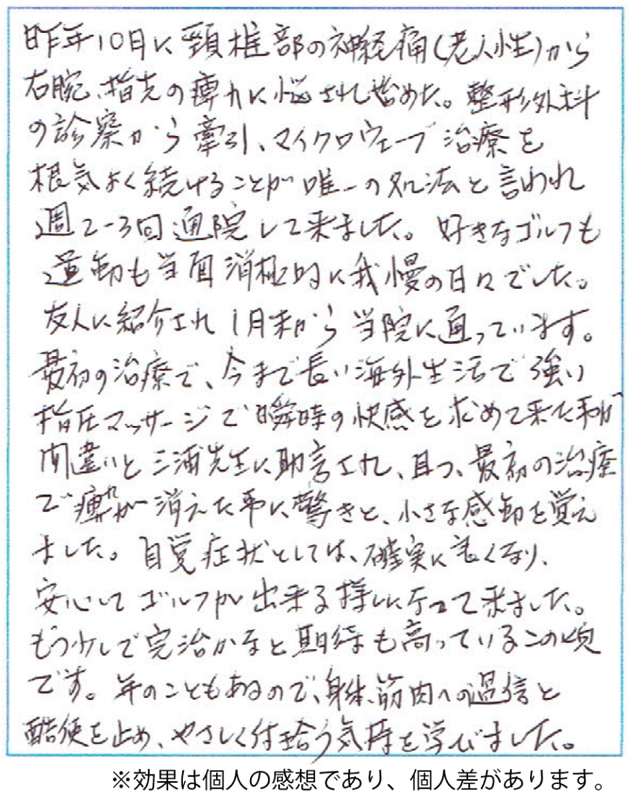 昨年10月に頸椎部の神経痛(老人性)から
右腕、指先の痺れに悩され始めた。整形外科
の診察から牽引、マイクロウェーブ治療を
根気よく続けることが唯一の処法と言われ
週2〜3回通院して来ました。好きなゴルフも
運動も当面消極的に我慢の日々でした。
友人に紹介され1月末から当院に通っています。
最初の治療で、今まで長い海外生活で強い
指圧マッサージで瞬時の快感を求めて来た事が
間違いと三浦先生に助言され、且つ、最初の治療
で痺れが消えた事に驚きと、小さな感動を覚え
ました。自覚症状としては、確実に良くなり、
安心してゴルフが出来る様になって来ました。
もう少しで完治かなと期待も高っているこの頃
です。年のこともあるので、身体、筋肉への過信と
酷使を止め、やさしく付合う気持を学びました。
※効果は個人の感想であり、個人差があります。